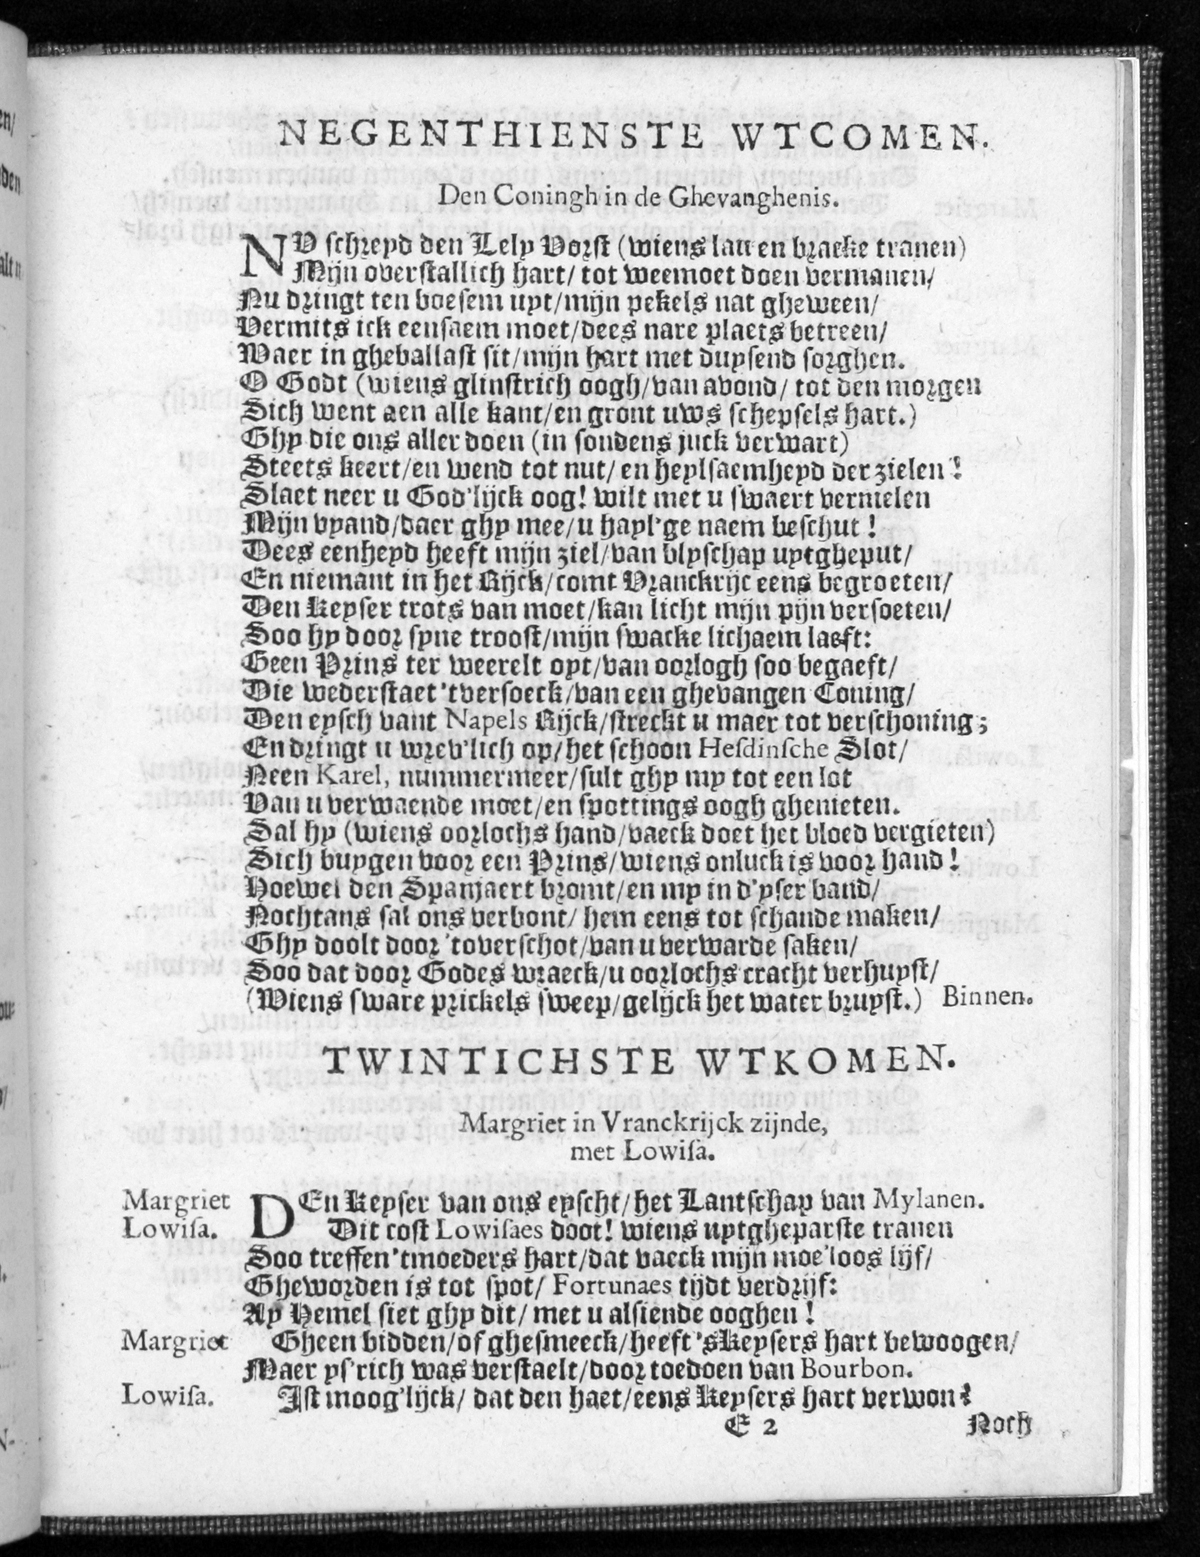 NEGENTHIENSTE WTCOMEN.
Den Coningh in de Ghevanghenis.
NV schreyd den Lely Vorst (wiens lauwen bracke tranen)
Mijn overstallich hart/ tot weemoet doen vermanen/
Nu dringt ten boesem uyt/mijn pekels nat gheween/
Vermits ick eensaem moet/dees nare plaets betreen/
Waer in gheballast sit/mijn hart met duysend sorghen.
O Godt (wiens glinstrich oogh/van avond/ tot den morgen
Sich went aen alle kant/en gront uws schepsels hart.)
Ghy die ons aller doen (in sondens juck verwart)
Steets keert/en wend tot nut/ en heylsaemheyd der zielen?
Slaet neer u God'lijck oog! wilt met u swaert vernielen
Mijn vyand/daer ghy mee/u hayl'ge naem beschut!
Dees eenheyd heeft mijn ziel/van blyschap uytgheput/
En niemant in het Rijck/comt Vranckrijc eens begroeten/
Den Keyser trots van moet/kan licht mijn pijn versoeten/
Soo hy door syne troost/mijn swacke lichaem laeft:
Geen Prins ter weerelt oyt/van oorlogh soo begaeft/
Die wederstaet 'tversoeck/van een ghevangen Coning/
Den eysch vant Napels Rijck/streckt u maer tot verschoning;
En dringt u wrev'lich op/het schoon Hesdinsche Slot/
Neen Karel, nummermeer/sult ghy my tot een lot
Van u verwaende moet/en spottings oogh ghenieten.
Sal hy (wiens oorlochs hand/vaeck doet het bloed vergieten)
Sich buygen voor een Prins/wiens onluck is voor hand!
Hoewel den Spanjaert bromt/en my in d'yser band/
Nochtans sal ons verbont/ hem eens tot schande maken/
Ghy doolt door 'toverschot/van u verwarde saken/
Soo dat door Godes wraeck/u oorlochs cracht verhuyst/
(Wiens sware prickels sweep/gelijck het water bruyst.) Binnen.
TWINTICHSTE WTKOMEN.
Margriet in Vranckrijck zijnde,
met Lowisa.
Margriet DEn Keyser van ons eyscht/het Lantschap van Mylanen.
Lowisa. Dit cost Lowisaes doot! wiens uytgheparste tranen
Soo treffen 'tmoeders hart/dat vaeck mijn moe'loos lijf/
Gheworden is tot spot/ Fortunaes tijdt verdrijf:
Ay Hemel siet ghy dit/ met u alsiende ooghen!
Margriet Gheen bidden/of ghesmeeck/heeft 'sKeysers hart bewoogen/
Maer ys'rich was verstaelt/door toedoen van Bourbon.
Lowisa. Ist moog'lijck/ dat den haet/eens Keysers hart verwon?
E 2 Noch